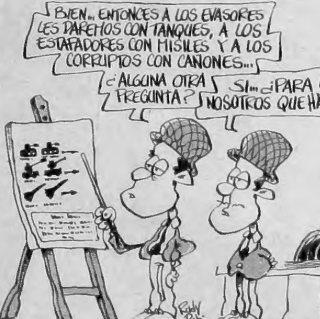 BIEN... ENTONCES A LOS EVASORES
LES DAREMOS CON TANQUES, A LOS
ESTAFADORES CON MISILES Y A LOS
CORRUPTOS CON CANONES...
¿ALGUNA OTRA
PREGUNTA?
SI... ¿PARA
NOSOTROS QUE HA
Rody